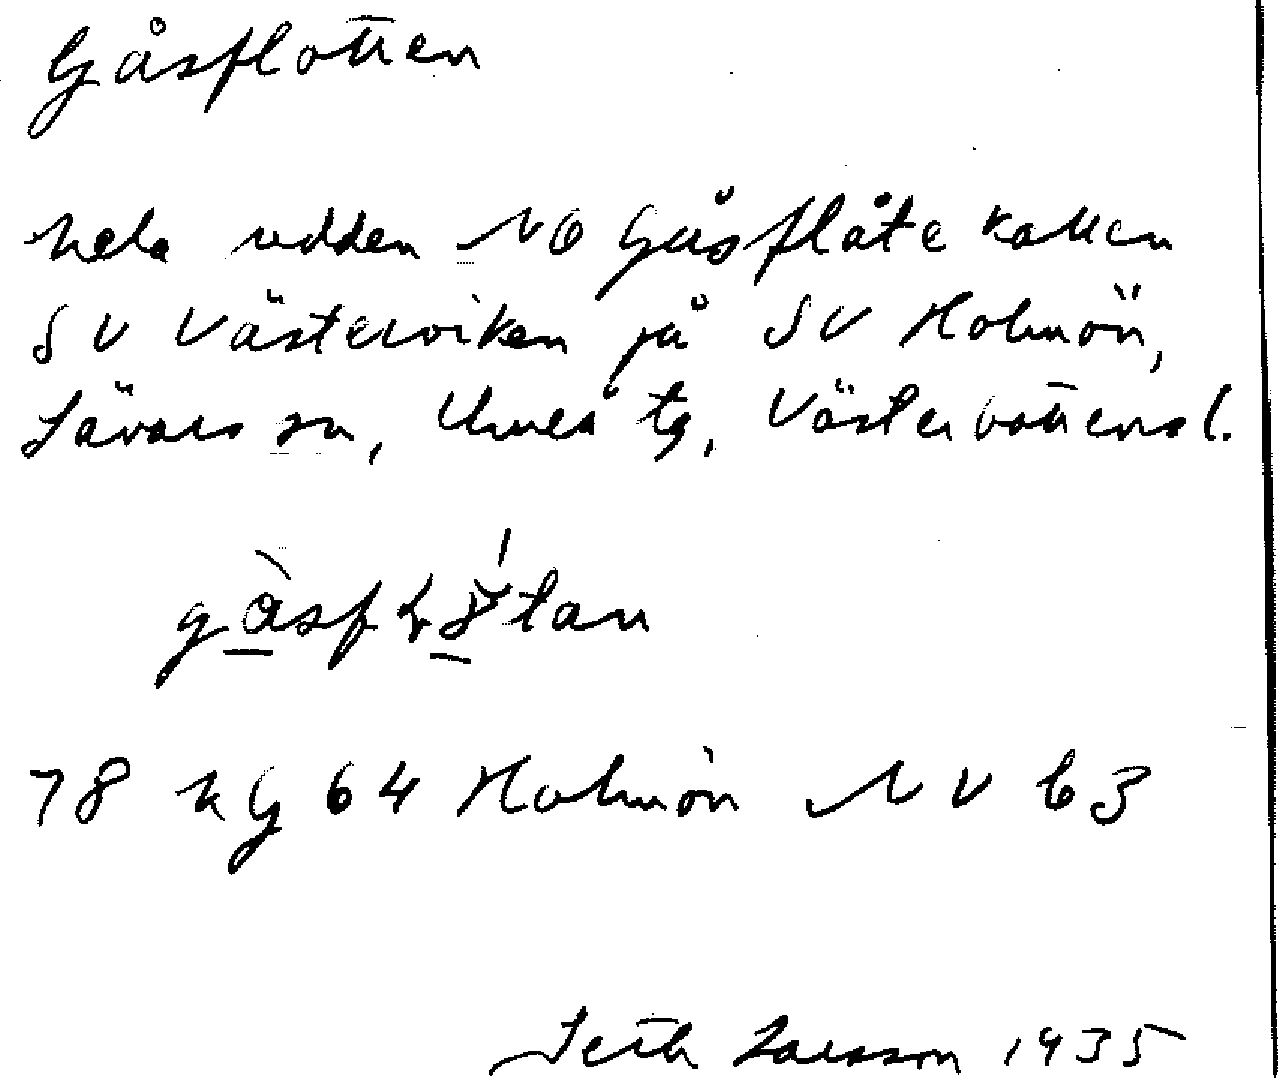 Gåsflotten
hela udden NO Gåsflåtekallen
SV Västerviken på SV Holmön,
Sävars sn, Umeå tg, Västerbottens l.
78 kg 64 Holmön NV 63
Seth Larsson 1935